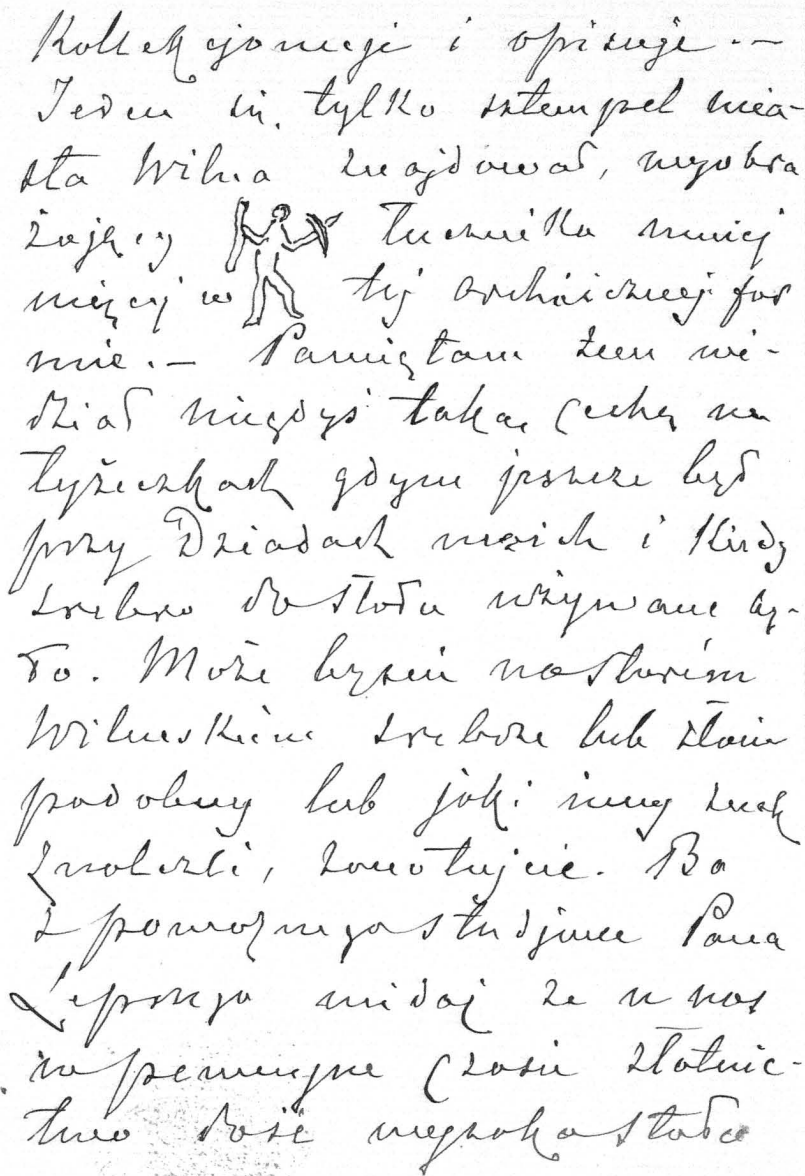 Kollekcjonuje i opisuje.—
Jeden się tylko sztempel mia-
sta Wilna znajdował, wyobra
żający łucznika mniej
więcej w tej archaicznej for
mie.— Pamiętam żem wi-
dział niegdyś taką cechę na
łyżeczkach gdym jeszcze był
przy Dziadach moich i kiedy
srebro do stołu używane by-
ło. Może byście na starém
Wileńskiém srebrze lub złocie
podobny lub jaki inny znak
znaleźli, zanotujcie. Bo
z poważnego studjum Pana
Lepszego widać że u nas
w pewnym czasie złotnic-
two dość wysoko stało